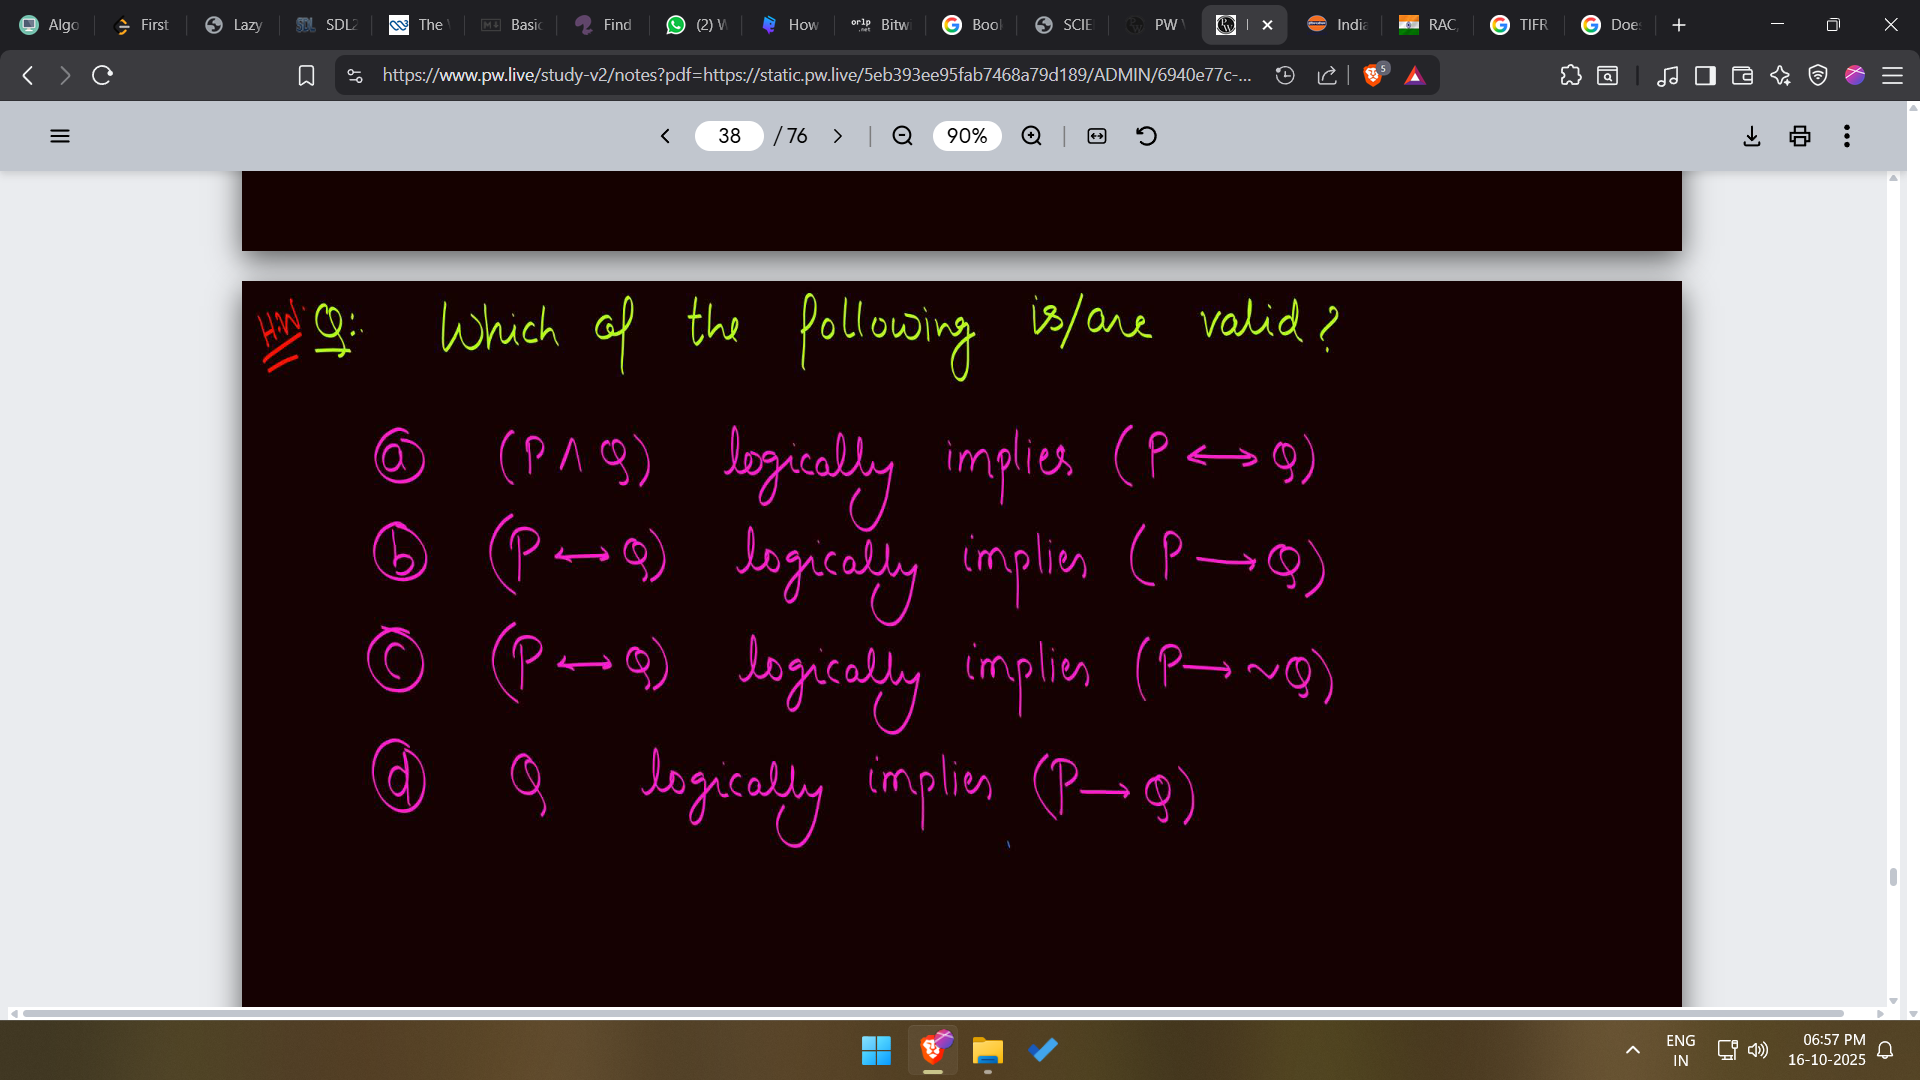 Algo First Lazy SDL2 The Basic Find (2) W How Bitwi Bool SCIE PW Indi RAC, TIFR Doe
https://www.pw.live/study-v2/notes?pdf=https://static.pw.live/5eb393ee95fab7468a79d189/ADMIN/6940e77c-... 5
38 / 76 90%
H.W Q: Which of the following is/are valid?
(a) (P ∧ Q) logically implies (P ⟷ Q)
(b) (P ⟷ Q) logically implies (P ⟶ Q)
(c) (P ⟷ Q) logically implies (P ⟶ ~Q)
(d) Q logically implies (P ⟶ Q)
ENG 06:57 PM
IN 16-10-2025